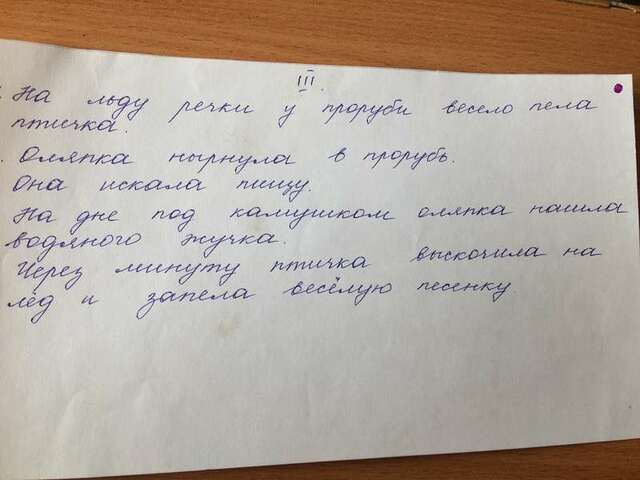 III.
На льду речки у проруби весело пела
птичка.
Оляпка нырнула в прорубь.
Она искала пищу.
На дне под камушком оляпка нашла
водяного жучка.
Через минуту птичка выскочила на
лёд и запела весёлую песенку.